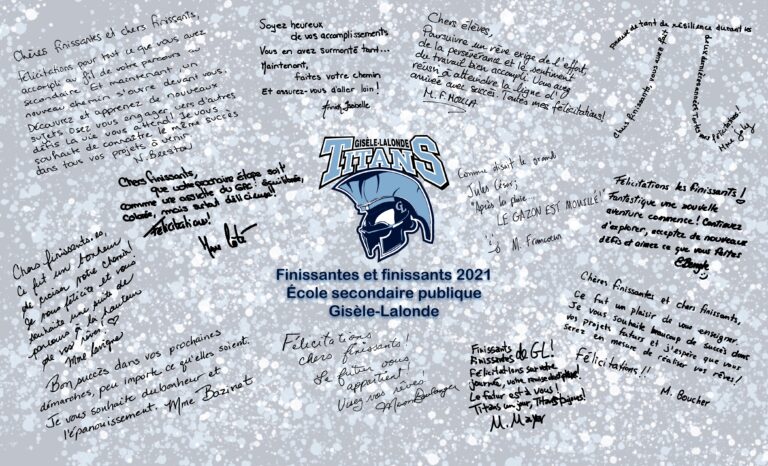 Chères finissantes et chers finissants,
Félicitations pour tout ce que vous avez
accompli au fil de votre parcours au
secondaire. Et maintenant, un
nouveau chemin s'ouvre devant vous.
Découvrez et apprenez de nouveaux
sujets. Osez vous engager vers d'autres
défis. La vie vous attend! Je vous
souhaite de connaître le même succès
dans tous vos projets à venir.
Soyez heureux
de vos accomplissements
Vous en avez surmonté tant...
Maintenant,
faites votre chemin
Et assurez-vous d'aller loin!
Chers élèves,
Poursuivre un rêve exige de l'effort,
de la persévérance et le sentiment
du travail bien accompli. Vous avez
réussi à atteindre la ligne d'
arrivée avec succès. Toutes mes félicitations!
Chers finissants,
de résilience durant
deux dernières années
Mes félicitations!
Mme Joly
GISÈLE-LALONDE
TITANS
Chers finissants,
que votre prochaine étape soit
comme une assiette du GFC: équilibrée,
colorée, mais surtout délicieuse!!
Félicitations!
Mme Côté
Comme disait le grand
Jules César;
"Après la pluie...
LE GAZON EST MOUILLÉ!"
M. Francoeur
Félicitations les finissants!
Fantastique une nouvelle
aventure commence! Continuez
d'explorer, acceptez de nouveaux
défis et aimez ce que vous faites
Finissantes et finissants 2021
École secondaire publique
Gisèle-Lalonde
Chers finissants.es,
Ce fut un bonheur
de croiser votre chemin!
Je vous félicite et vous
souhaite une suite de
parcours à la hauteur
de vos rêves!
Mme Lavigne
Bon succès dans vos prochaines
démarches, peu importe ce qu'elles soient.
Je vous souhaite du bonheur et
l'épanouissement. Mme Bazinet
Félicitations
chers finissants!
Le futur vous
appartient!
Vivez vos rêves!
Finissants
Finissantes de GL!
Félicitations sur votre
journée, votre remise des diplômes!
Le futur est à vous!
Titans un jour, Titans toujours!
M. Mayer
Chères finissantes et chers finissants,
Ce fut un plaisir de vous enseigner.
Je vous souhaite beaucoup de succès dans
vos projets futurs et j'espère que vous
serez en mesure de réaliser vos rêves!
Félicitations!!
M. Boucher